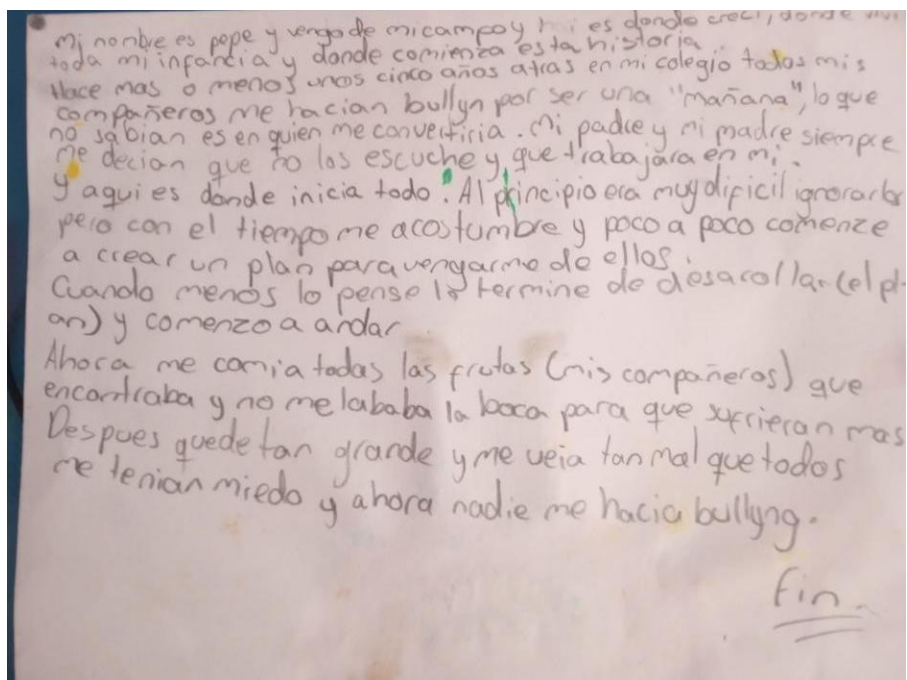 Mi nombre es pepe y vengo de mi campo y es donde creci, donde
toda mi infancia y donde comienza esta historia
Hace mas o menos unos cinco años atras en mi colegio todos mis
compañeros me hacian bullyn por ser una "mañana", lo que
no sabian es en quien me convertiria. Mi padre y mi madre siempre
me decian que no los escuche y que trabajara en mi.
y aqui es donde inicia todo. Al principio era muy dificil ignorarlos
pero con el tiempo me acostumbre y poco a poco comenze
a crear un plan para vengarme de ellos.
Cuando menos lo pense lo termine de desarollar (el pl-
an) y comenzo a andar
Ahora me comia todas las frutas (mis compañeros) que
encontraba y no me lababa la boca para que sufrieran mas
Despues quede tan grande y me veia tan mal que todos
me tenian miedo y ahora nadie me hacia bullyng.
Fin